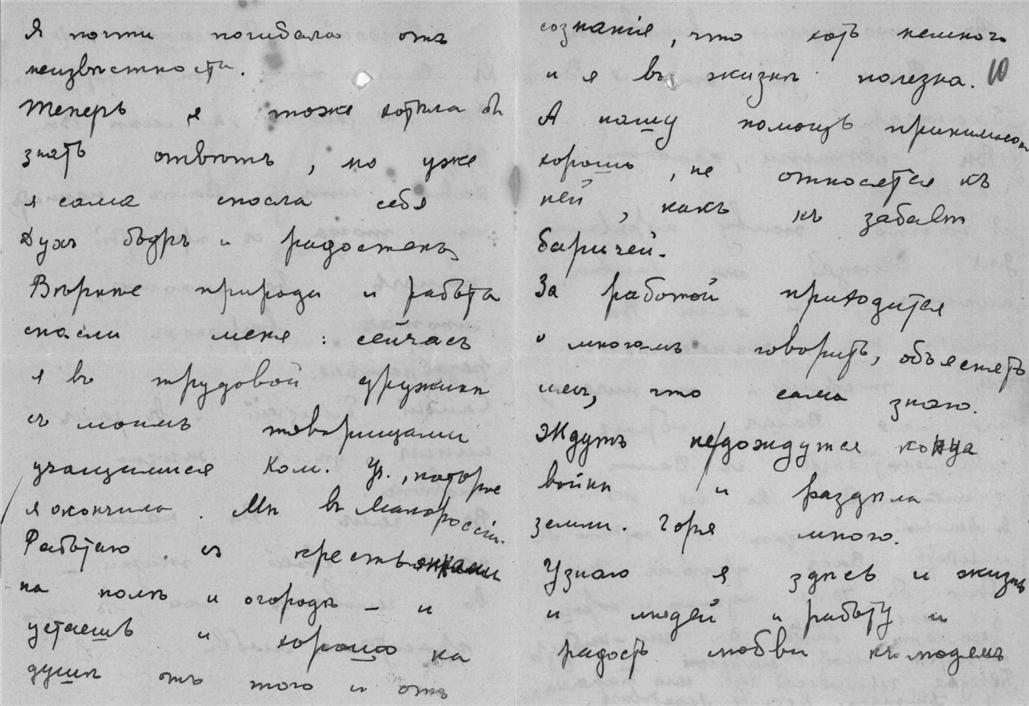 Я почти погибала отъ
неизвѣстности.
Теперь я тоже хотѣла бы
знать отвѣтъ, но уже
я сама спасла себя
Духъ бодръ и радостенъ
Вѣрнѣе природа и работа
спасли меня: сейчасъ
я въ трудовой дружинѣ
съ моими товарищами
учащимися Ком. Уч., которое
я окончила. Мы въ Малороссіи.
Работаю съ крестьянами
на полѣ и огородѣ – и
устаешь и хорошо на
душѣ отъ того и отъ
сознанія, что хоть немного
и я въ жизни полезна. 10
А нашу помощь принимаютъ
хорошо, не относятся къ
ней, какъ къ забавѣ
баричей.
За работой приходится
о многомъ говорить, объяснять
имъ, что сама знаю.
Ждутъ не дождутся конца
войны и раздѣла
земли. Горя много.
Узнаю я здѣсь и жизнь
и людей и работу и
радость любви къ людямъ